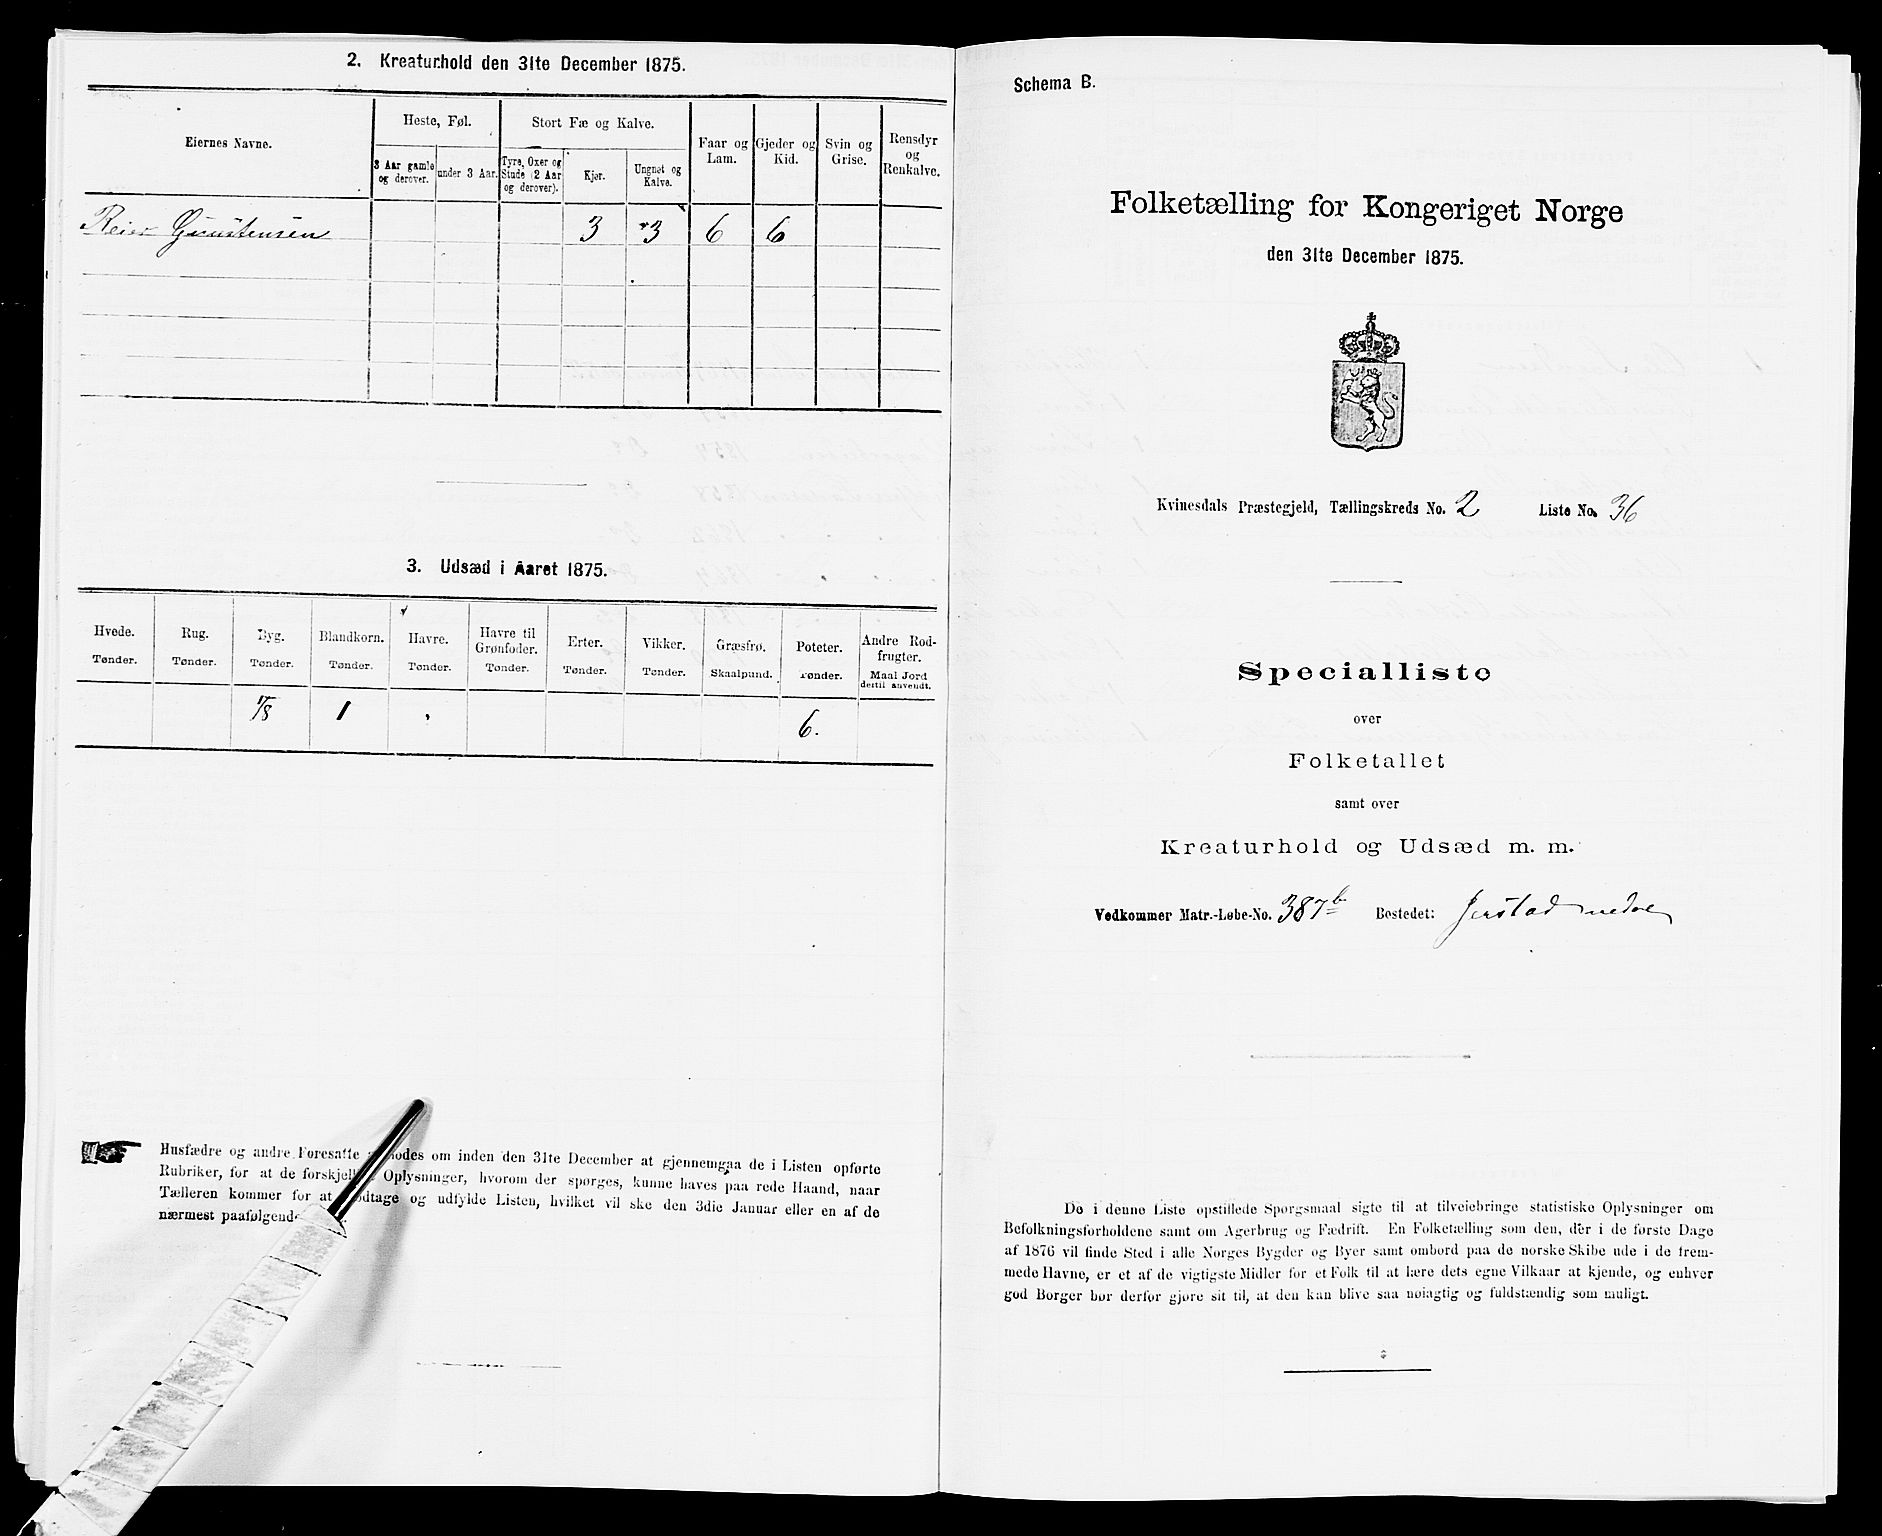 2. Kreaturhold den 31te December 1875.
Eiernes Navne.
Heste, Føl.
3 Aar gamle og derover.
under 3 Aar.
Stort Fæ og Kalve.
Tyre, Oxer og Stude (2 Aar og derover).
Kjør.
Ungnøt og Kalve.
Faar og Lam.
Gjeder og Kid.
Svin og Grise.
Rensdyr og Renkalve.
Reier Gunstensen 3 3 6 6
3. Udsæd i Aaret 1875.
Hvede. Rug. Byg. Blandkorn. Havre. Havre til Grønfoder. Erter. Vikker. Græsfrø. Poteter. Andre Rodfrugter.
Tønder. Tønder. Tønder. Tønder. Tønder. Tønder. Tønder. Tønder. Skaalpund. Tønder. Maal Jord dertil anvendt.
1/8 1 6.
Husfædre og andre Foresatte om inden den 31te December at gjennemgaa de i Listen opførte
Rubriker, for at de Oplysninger, hvorom der spørges, kunne haves paa rede Haand, naar
Tælleren kommer for at og udfylde Listen, hvilket vil ske den 3die Januar eller en af de
nærmest
Schema B.
Folketælling for Kongeriget Norge
den 31te December 1875.
Kvinesdals Præstegjeld, Tællingskreds No. 2 Liste No. 36
Specialliste
over
Folketallet
samt over
Kreaturhold og Udsæd m. m.
Vedkommer Matr.-Løbe-No. 387b Bostedet: Jerstad nedre
De i denne Liste opstillede Spørgsmaal sigte til at tilveiebringe statistiske Oplysninger om
Befolkningsforholdene samt om Agerbrug og Fædrift. En Folketælling som den, der i de første Dage
af 1876 vil finde Sted i alle Norges Bygder og Byer samt ombord paa de norske Skibe ude i de frem-
mede Havne, er et af de vigtigste Midler for et Folk til at lære dets egne Vilkaar at kjende, og enhver
god Borger bør derfor gjøre sit til, at den kan blive saa nøiagtig og fuldstændig som muligt.